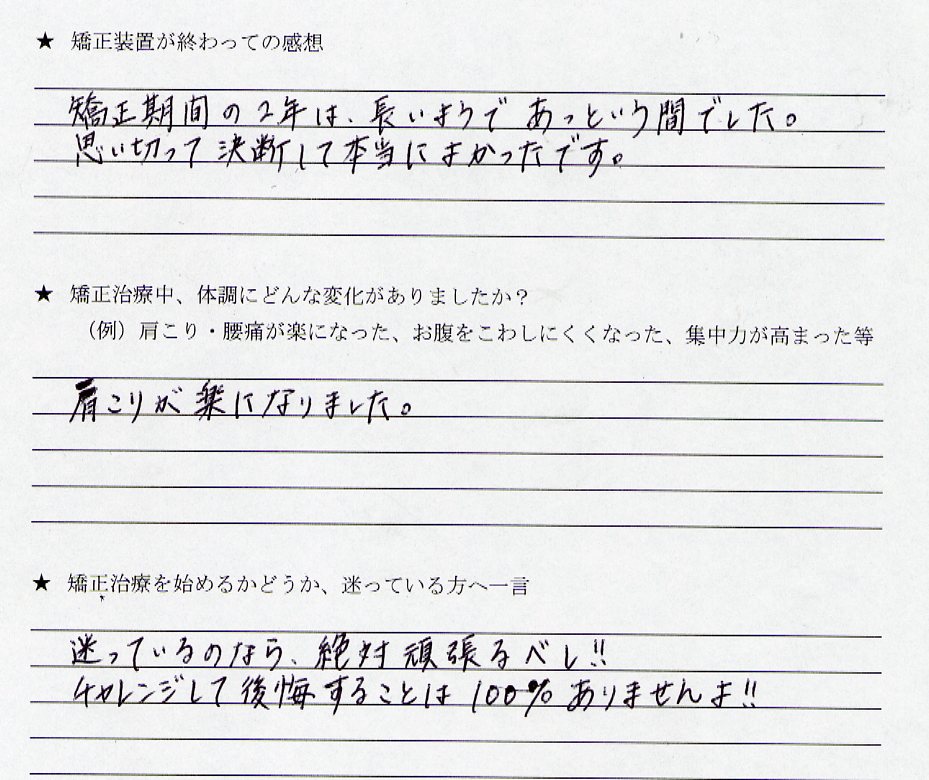 ★ 矯正装置が終わっての感想
矯正期間の2年は、長いようであっという間でした。
思い切って決断して本当によかったです。
★ 矯正治療中、体調にどんな変化がありましたか？
（例）肩こり・腰痛が楽になった、お腹をこわしにくくなった、集中力が高まった等
肩こりが楽になりました。
★ 矯正治療を始めるかどうか、迷っている方へ一言
迷っているのなら、絶対頑張るべし!!
チャレンジして後悔することは100%ありませんよ!!